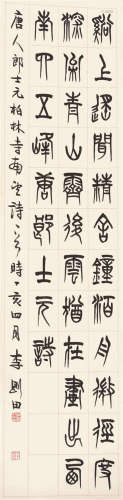 谿上遙聞精舍鐘泊舟微徑度
深松青山霽後雲猶在畫出西
南四五峰唐郎士元詩
唐人郎士元柏林寺南望詩一首時丁亥四月李剛田